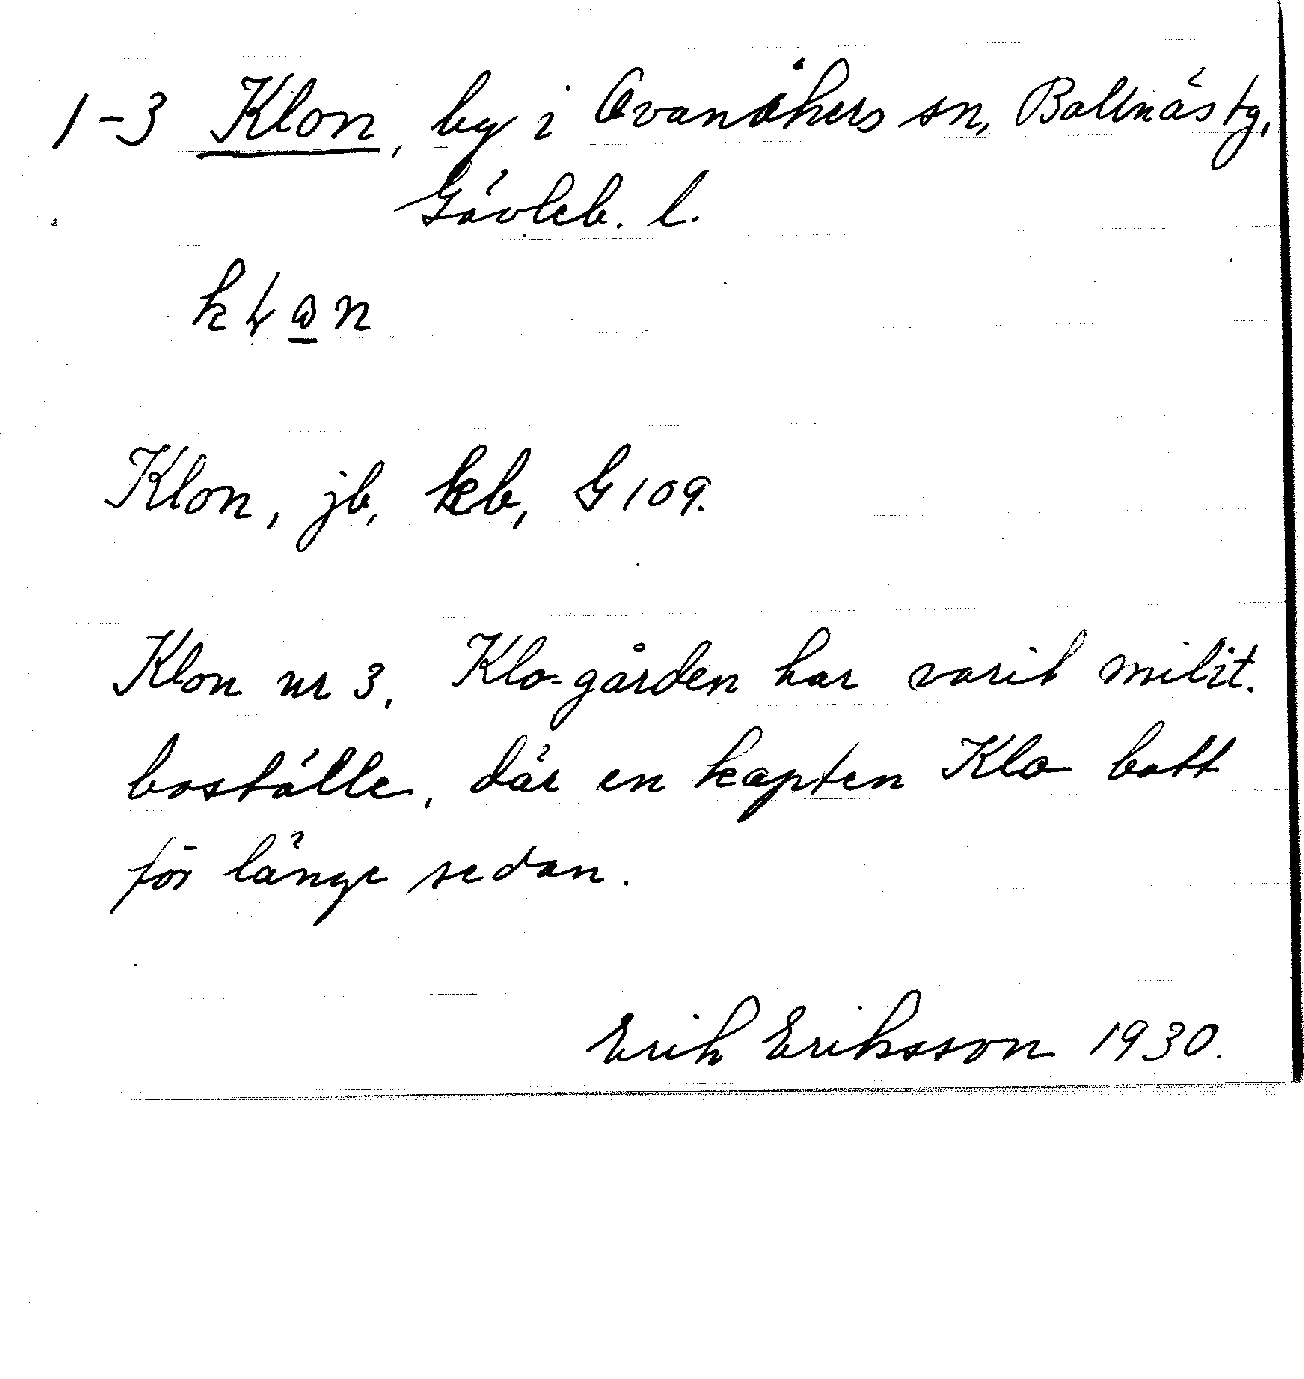 1-3 Klon, by i Ovanåkers sn, Bollnäs tg,
Gävleb. l.
Klon, jb, kb, G 109.
Klon nr 3. Klo-gården har varit milit.
boställe, där en kapten Klo bott
för länge sedan.
Erik Eriksson 1930.